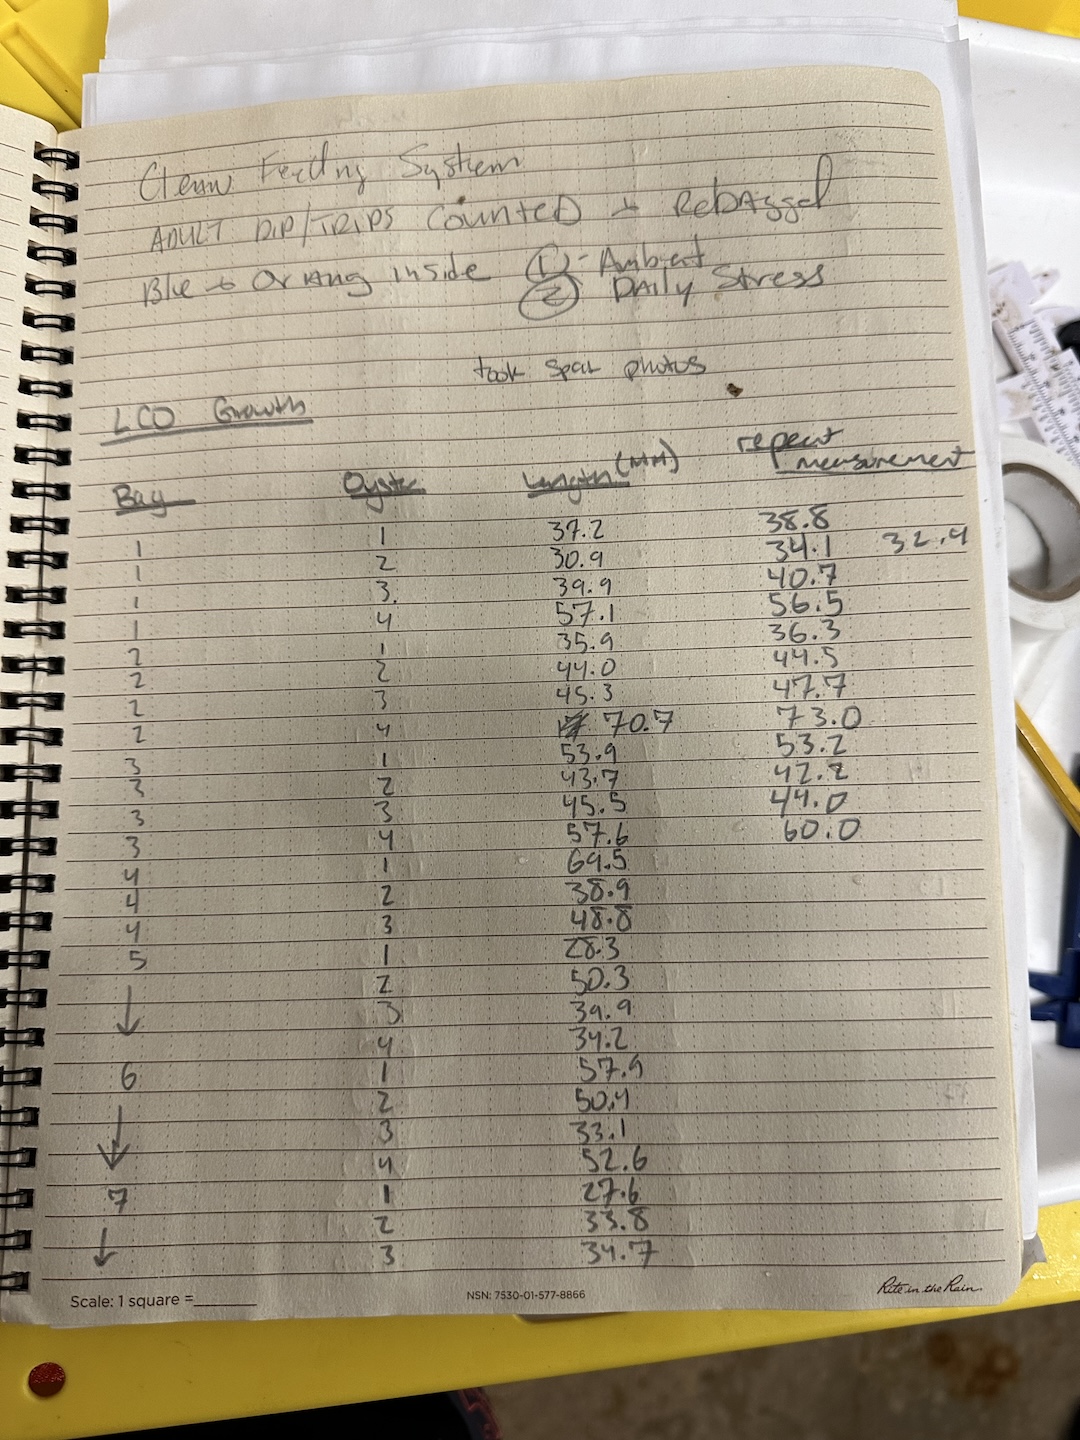 Clean Feeding System
ADULT DIP/TRIPS COUNTED + RebAgged
Blue + Orang inside ① - Ambient
② DAily Stress
took spat photos
LCO Growth
repeat measurement
Bag Oyster Length (MM)
1 1 37.2 38.8
1 2 30.9 34.1 32.4
1 3 39.9 40.7
1 4 57.1 56.5
2 1 35.9 36.3
2 2 44.0 44.5
2 3 45.3 47.7
2 4 70.7 73.0
3 1 53.9 53.2
3 2 43.7 42.2
3 3 45.5 44.0
3 4 57.6 60.0
4 1 69.5
4 2 38.9
4 3 48.8
5 1 28.3
↓ 2 50.3
3 39.9
4 34.2
6 1 57.9
↓ 2 50.4
3 33.1
4 52.6
7 1 27.6
↓ 2 33.8
3 34.7
Scale: 1 square =______ NSN: 7530-01-577-8866 Rite in the Rain